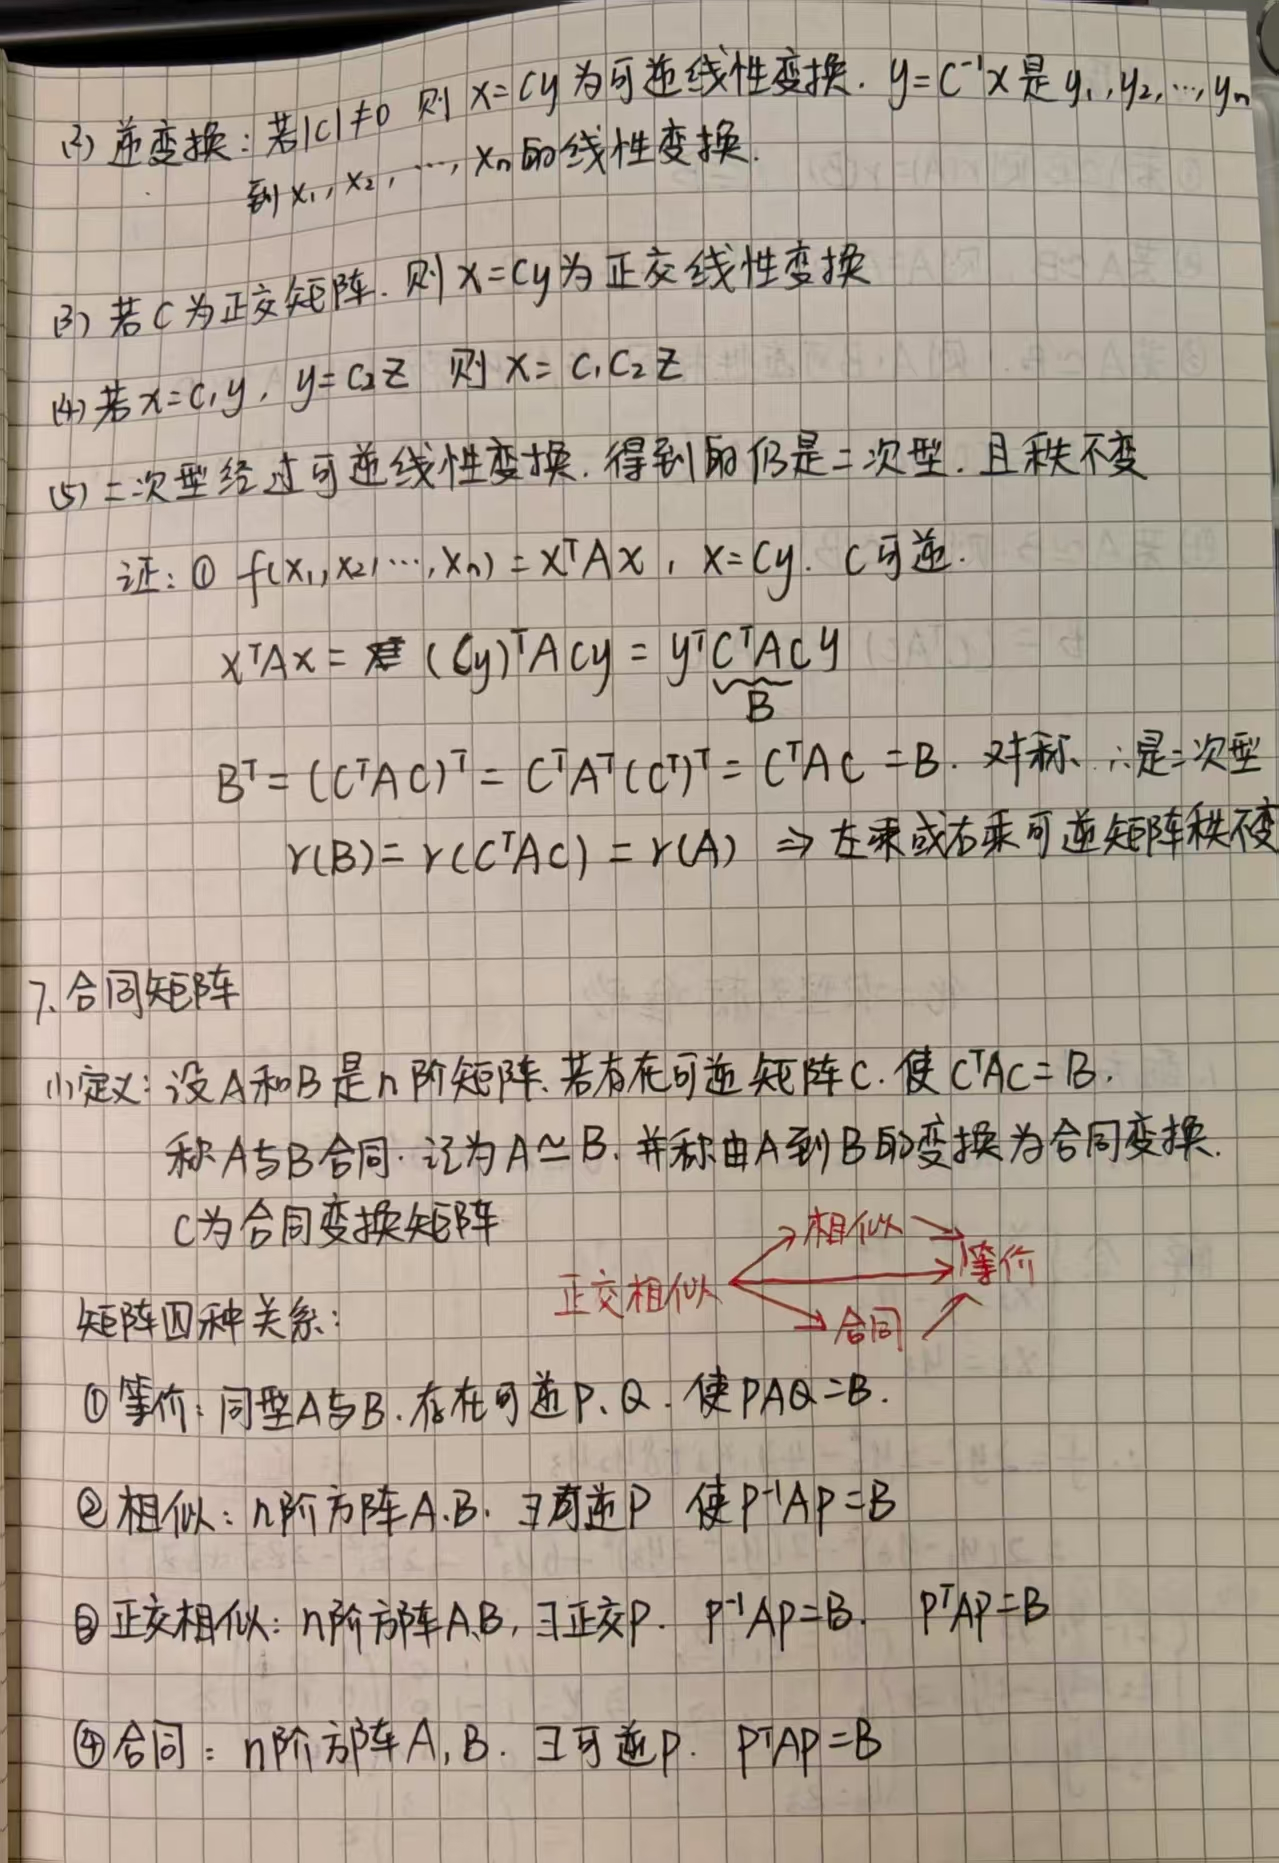 (2) 逆变换：若|C|≠0 则 x=Cy 为可逆线性变换. y=C⁻¹x 是 y₁,y₂,…,yₙ
到 x₁,x₂,…,xₙ 的线性变换.
(3) 若 C 为正交矩阵. 则 x=Cy 为正交线性变换
(4) 若 x=C₁y, y=C₂z 则 x=C₁C₂z
(5) 二次型经过可逆线性变换. 得到的仍是二次型. 且秩不变
证：① f(x₁,x₂,…,xₙ)=xᵀAx, x=Cy. C可逆.
xᵀAx = (Cy)ᵀACy = yᵀCᵀACy
B
Bᵀ=(CᵀAC)ᵀ=CᵀAᵀ(Cᵀ)ᵀ=CᵀAC=B. 对称、∴是二次型
r(B)=r(CᵀAC)=r(A) ⇒ 左乘或右乘可逆矩阵秩不变
7、合同矩阵
(1)定义：设A和B是n阶矩阵、若存在可逆矩阵C. 使CᵀAC=B.
称A与B合同. 记为A≃B、并称由A到B的变换为合同变换.
C为合同变换矩阵
相似
正交相似 等价
合同
矩阵四种关系：
①等价：同型A与B、存在可逆P、Q. 使PAQ=B.
②相似：n阶方阵A.B. ∃可逆P 使P⁻¹AP=B
③正交相似：n阶方阵A.B, ∃正交P. P⁻¹AP=B. PᵀAP=B
④合同：n阶方阵A,B. ∃可逆P. PᵀAP=B